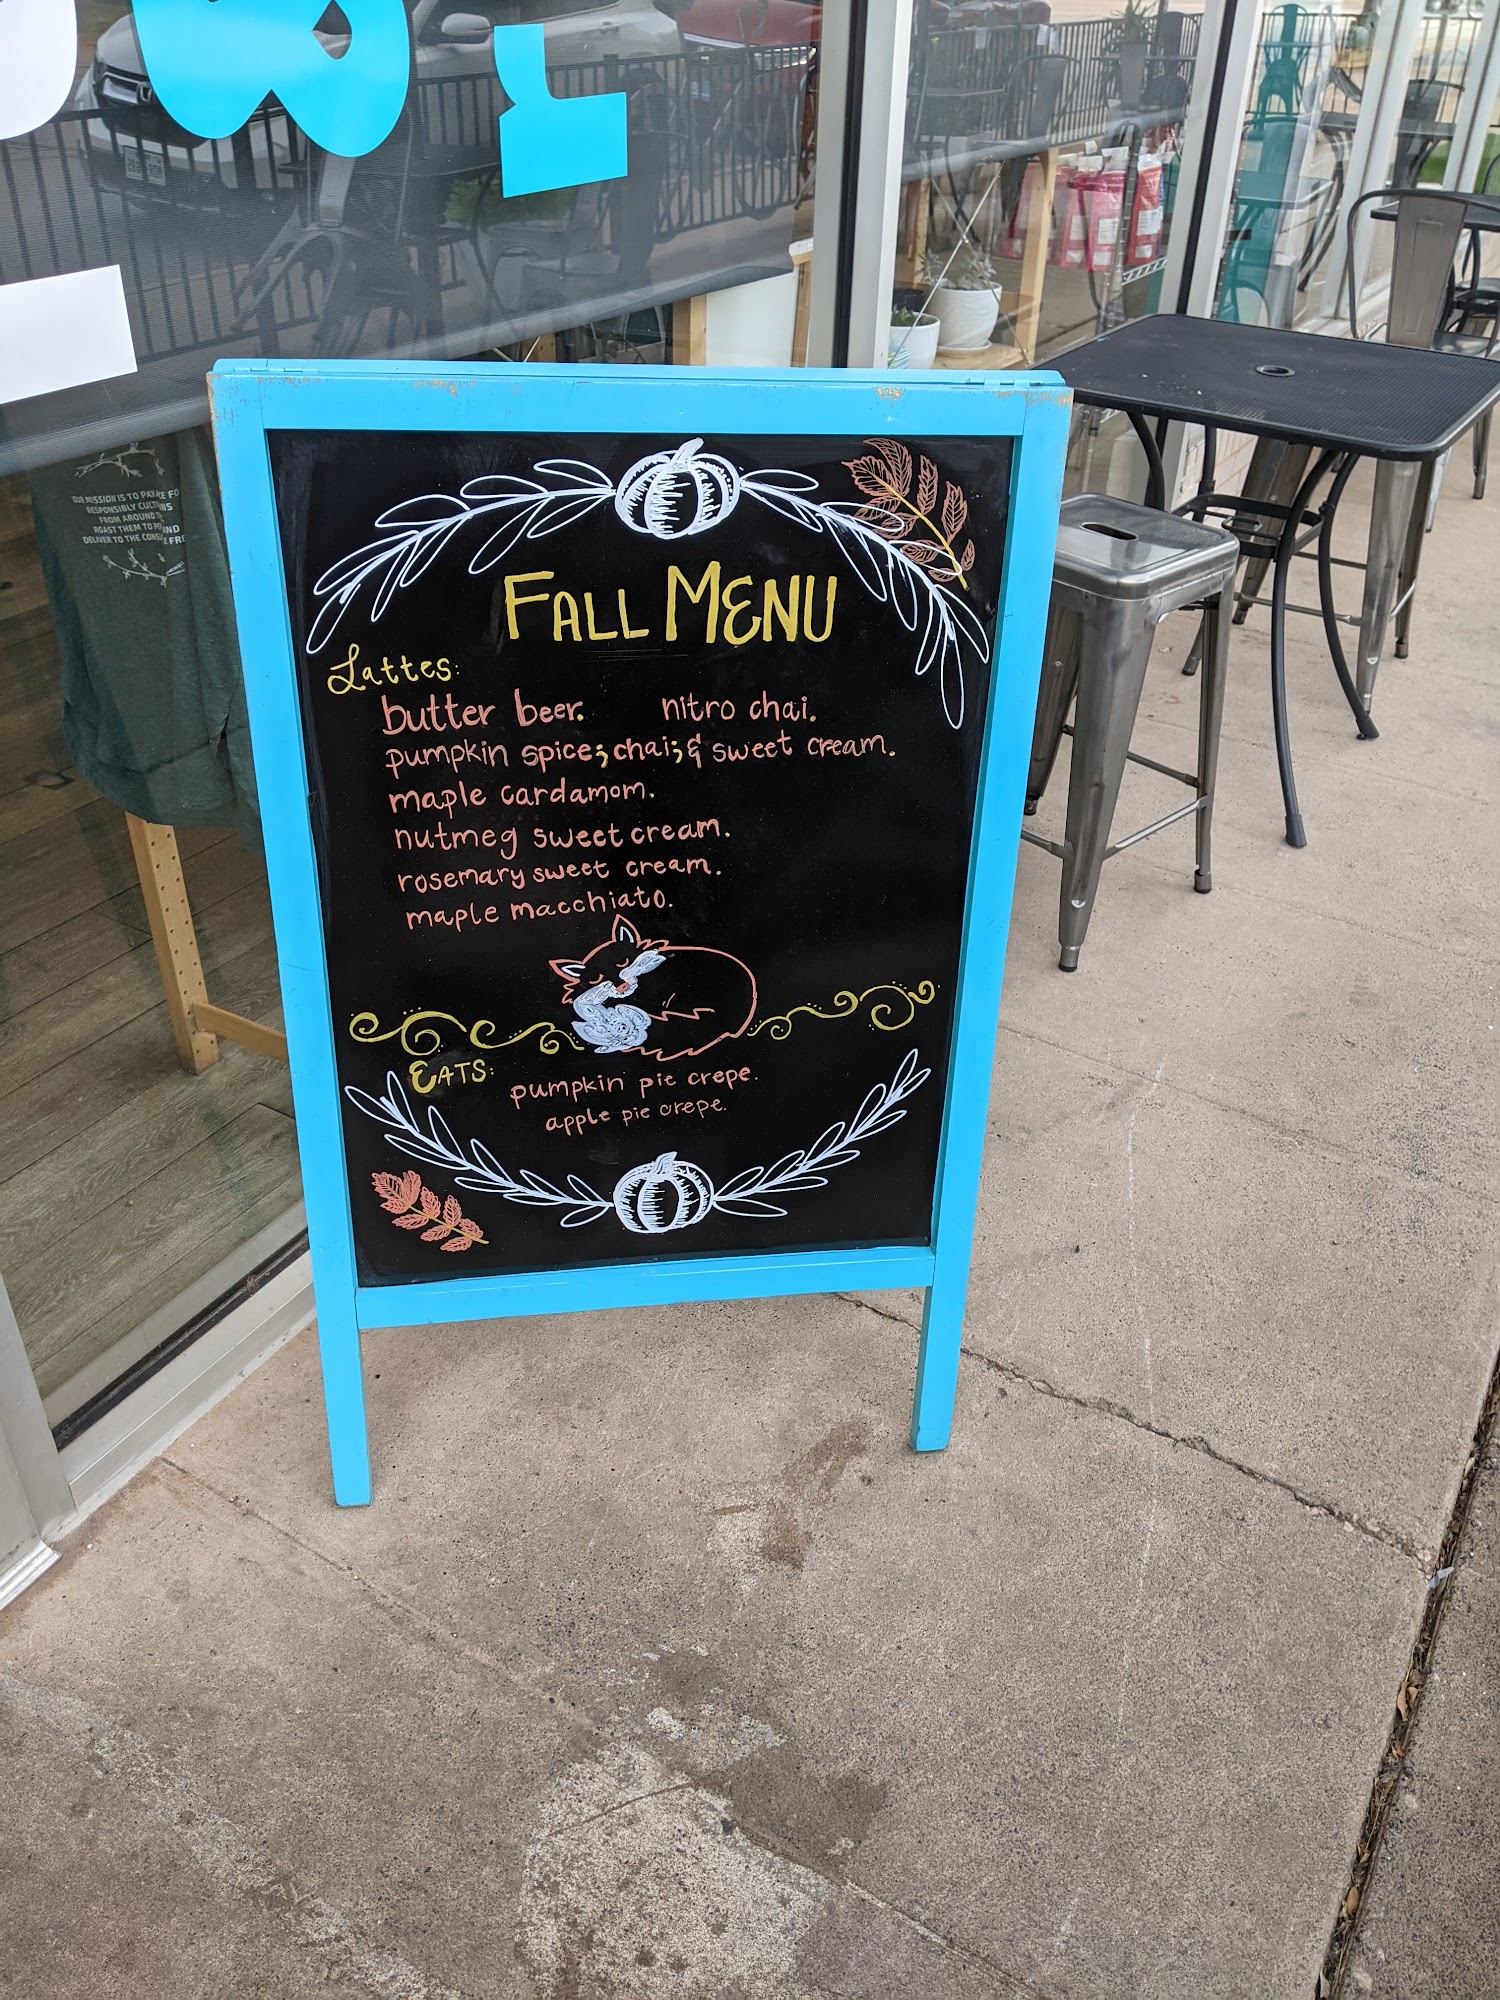 OUR MISSION IS TO
RESPONSIBLY
FROM AROUND
ROAST THEM TO AND
DELIVER TO THE
FALL MENU
Lattes:
butter beer. nitro chai.
pumpkin spice; chai; & sweet cream.
maple cardamom.
nutmeg sweet cream.
rosemary sweet cream.
maple macchiato.
EATS:
pumpkin pie crepe.
apple pie crepe.